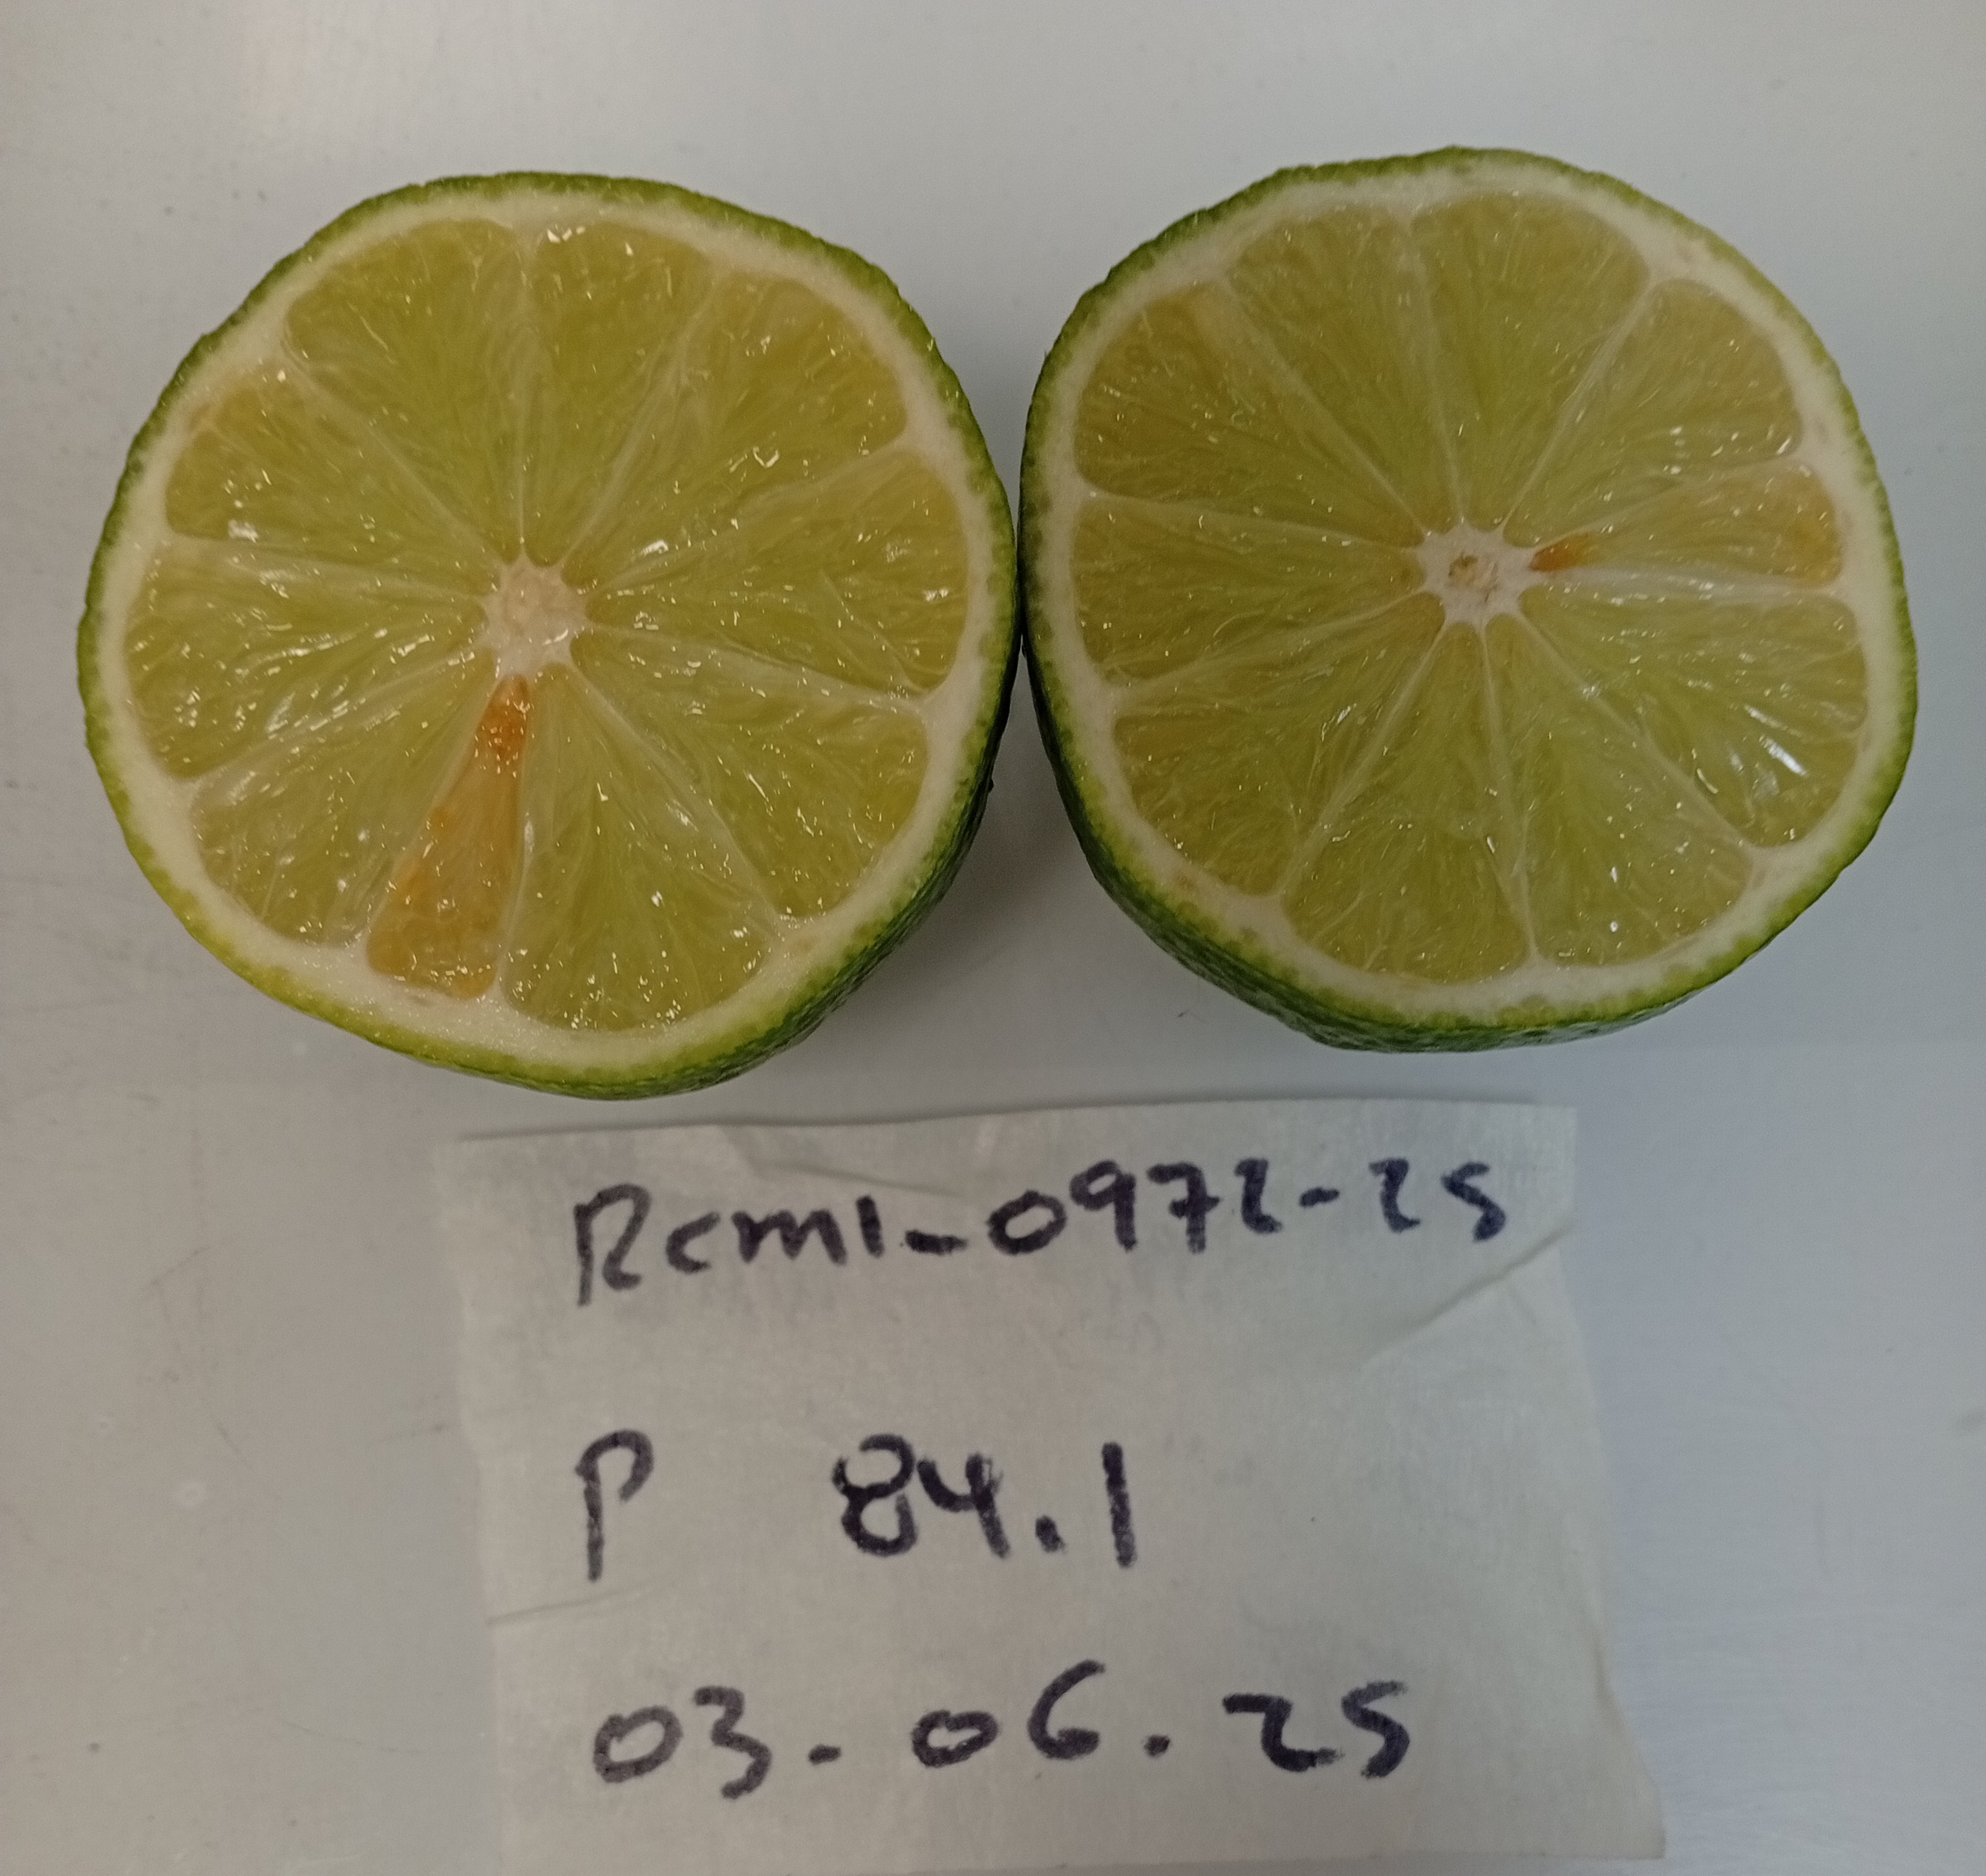 Rcml-0972-25
P 84.1
03.06.25